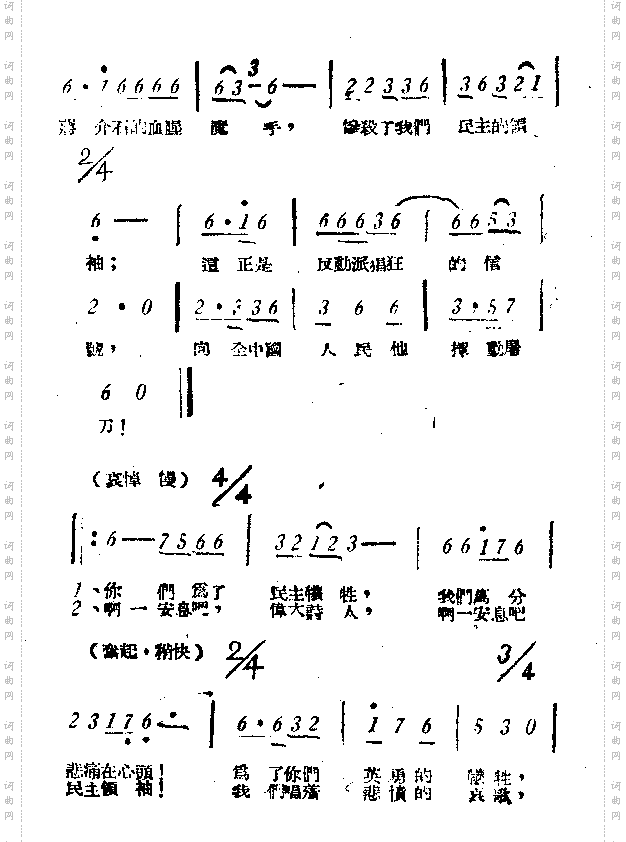 6·i6666 | 63 3 6— | 22336 | 36321
蔣 介石的血腥 魔 手， 慘殺了我們 民主的領
2/4
6—— | 6·i6 | 66636 | 6653
袖； 這 正是 反動派猖狂 的 信
2·0 | 2·336 | 3 6 6 | 3·57
號， 向 全中國 人 民 他 揮 動屠
6 0
刀！
（哀悼 慢） 4/4
6—7566 | 32123— | 66i76
1、你 們 爲了 民主犧 牲， 我們萬 分
2、啊一安息吧， 偉大詩 人， 啊一安息吧
（奮起·稍快） 2/4 3/4
23176· | 6·632 | i 7 6 | 5 3 0
悲痛在心頭！ 爲 了你們 英 勇 的 犧 牲，
民主領 袖！ 我 們唱着 悲 憤 的 哀 歌，
词曲网